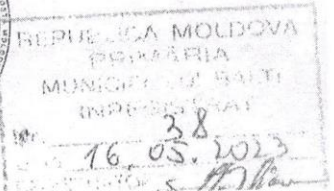 REPUBLICA MOLDOVA
PRIMĂRIA
MUNICIPIULUI BĂLȚI
ÎNREGISTRAT
Nr. 38
16 05. 2023